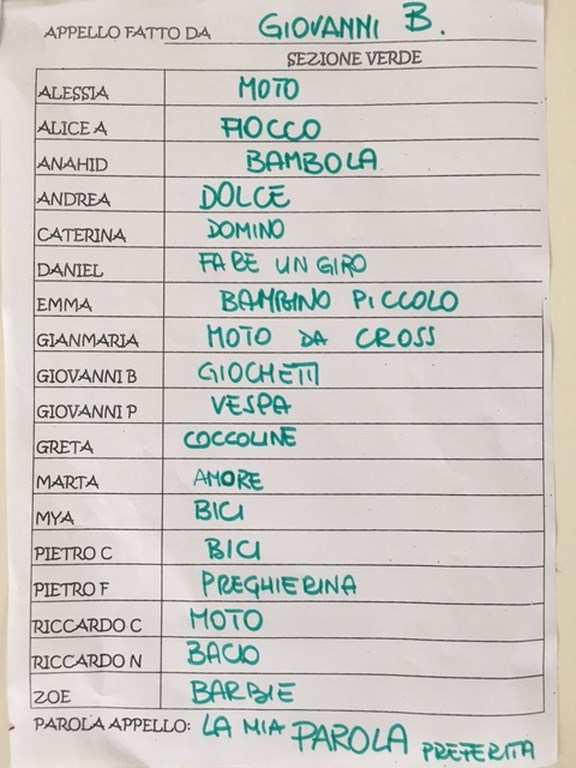 APPELLO FATTO DA GIOVANNI B.
SEZIONE VERDE
ALESSIA MOTO
ALICE A FIOCCO
ANAHID BAMBOLA
ANDREA DOLCE
CATERINA DOMINO
DANIEL FARE UN GIRO
EMMA BAMBINO PICCOLO
GIANMARIA MOTO DA CROSS
GIOVANNI B GIOCHETTI
GIOVANNI P VESPA
GRETA COCCOLINE
MARTA AMORE
MYA BICI
PIETRO C BICI
PIETRO F PREGHIERINA
RICCARDO C MOTO
RICCARDO N BACIO
ZOE BARBIE
PAROLA APPELLO: LA MIA PAROLA PREFERITA